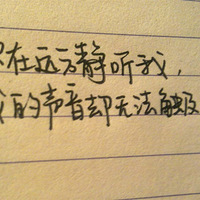 在远方静听我，
的声音却无法触及